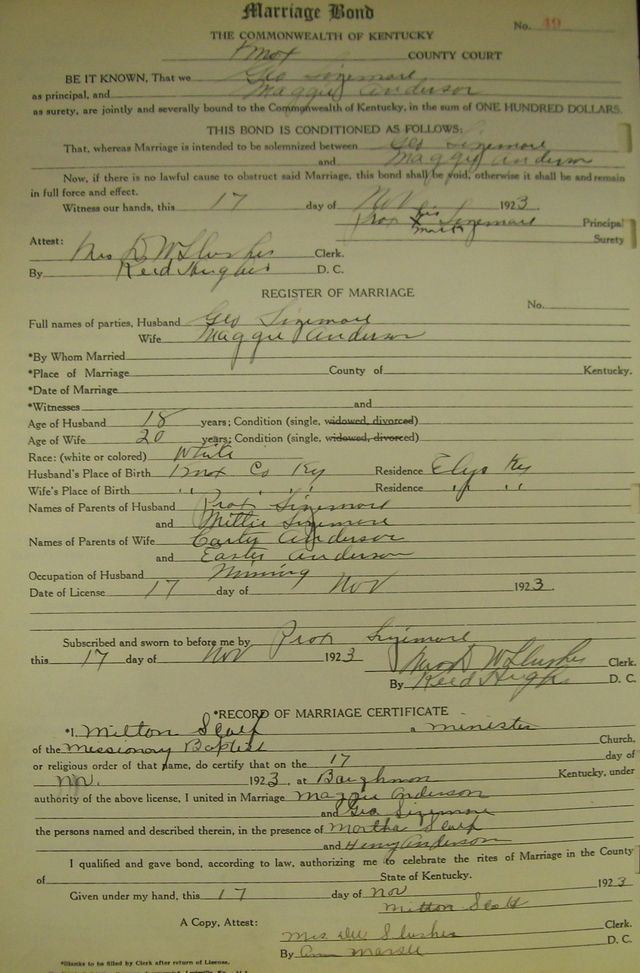 Marriage Bond
No. 49
THE COMMONWEALTH OF KENTUCKY
Knox COUNTY COURT
BE IT KNOWN, That we Geo Sizemore
as principal, and Maggie Anderson
as surety, are jointly and severally bound to the Commonwealth of Kentucky, in the sum of ONE HUNDRED DOLLARS.
THIS BOND IS CONDITIONED AS FOLLOWS:
That, whereas Marriage is intended to be solemnized between Geo Sizemore
and Maggie Anderson
Now, if there is no lawful cause to obstruct said Marriage, this bond shall be void, otherwise it shall be and remain
in full force and effect.
Witness our hands, this 17 day of Nov 1923
his
Prox X Sizemore Principal
mark
Surety
Attest:
Mrs D W Slusher Clerk.
By Reed Hughes D. C.
REGISTER OF MARRIAGE
No.
Full names of parties, Husband Geo Sizemore
Wife Maggie Anderson
*By Whom Married
*Place of Marriage County of Kentucky.
*Date of Marriage
*Witnesses and
Age of Husband 18 years; Condition (single, widowed, divorced)
Age of Wife 20 years; Condition (single, widowed, divorced)
Race: (white or colored) White
Husband's Place of Birth Knox Co Ky Residence Elys Ky
Wife's Place of Birth " " " " Residence " " "
Names of Parents of Husband Prox Sizemore
and Millie Sizemore
Names of Parents of Wife Carter Anderson
and Easter Anderson
Occupation of Husband Mining
Date of License 17 day of Nov 1923.
Subscribed and sworn to before me by Prox Sizemore
this 17 day of Nov 1923
Mrs D W Slusher Clerk.
By Reed Hughes D. C.
*RECORD OF MARRIAGE CERTIFICATE
*I, Milton Scalf a minister
of the Missionary Baptist Church,
or religious order of that name, do certify that on the 17 day of
Nov. 1923, at Baughman Kentucky, under
authority of the above license, I united in Marriage Maggie Anderson
and Geo Sizemore
the persons named and described therein, in the presence of Martha Scalf
and Henry Anderson
I qualified and gave bond, according to law, authorizing me to celebrate the rites of Marriage in the County
of State of Kentucky.
Given under my hand, this 17 day of Nov 1923
Milton Scalf
A Copy, Attest:
Mrs. DW Slusher Clerk.
By D. C.
*Blanks to be filled by Clerk after return of License.